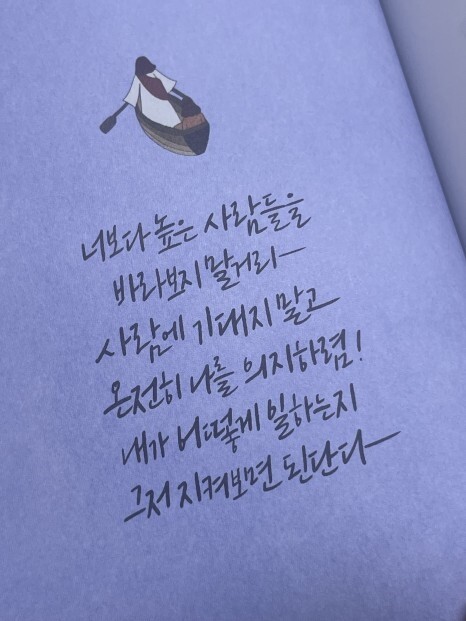 너보다 높은 사람들을
바라보지 말거라ㅡ
사람에 기대지 말고
온전히 나를 의지하렴!
내가 어떻게 일하는지
그저 지켜보면 된단다ㅡ